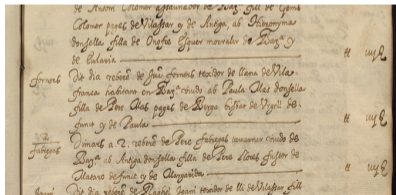 de Antoni Colomer assaunador de Barª fill de Gemᵗ
Colomer pages de Vilassar y de Antiga, ab Hieronyma
donsella filla de Onofre Esquer mercader de Barª y
de Eularia
fornens
Dit dia rebere de Juã fornens texidor de llana de Vila
franca habitant en Barª viudo ab Paula Mas donsella
filla de Pere Mas pages de Berga bisbat de Urgell de
funct y de Paula
Dimars a 2, rebere de Pere fabregas tavarner viudo de
fabregas
Barª ab Antiga donsella filla de Pere Llovet fuster de
Mataro defunct y de Margarida
Dit dia rebere de
texidor de lli de Vilassar fill